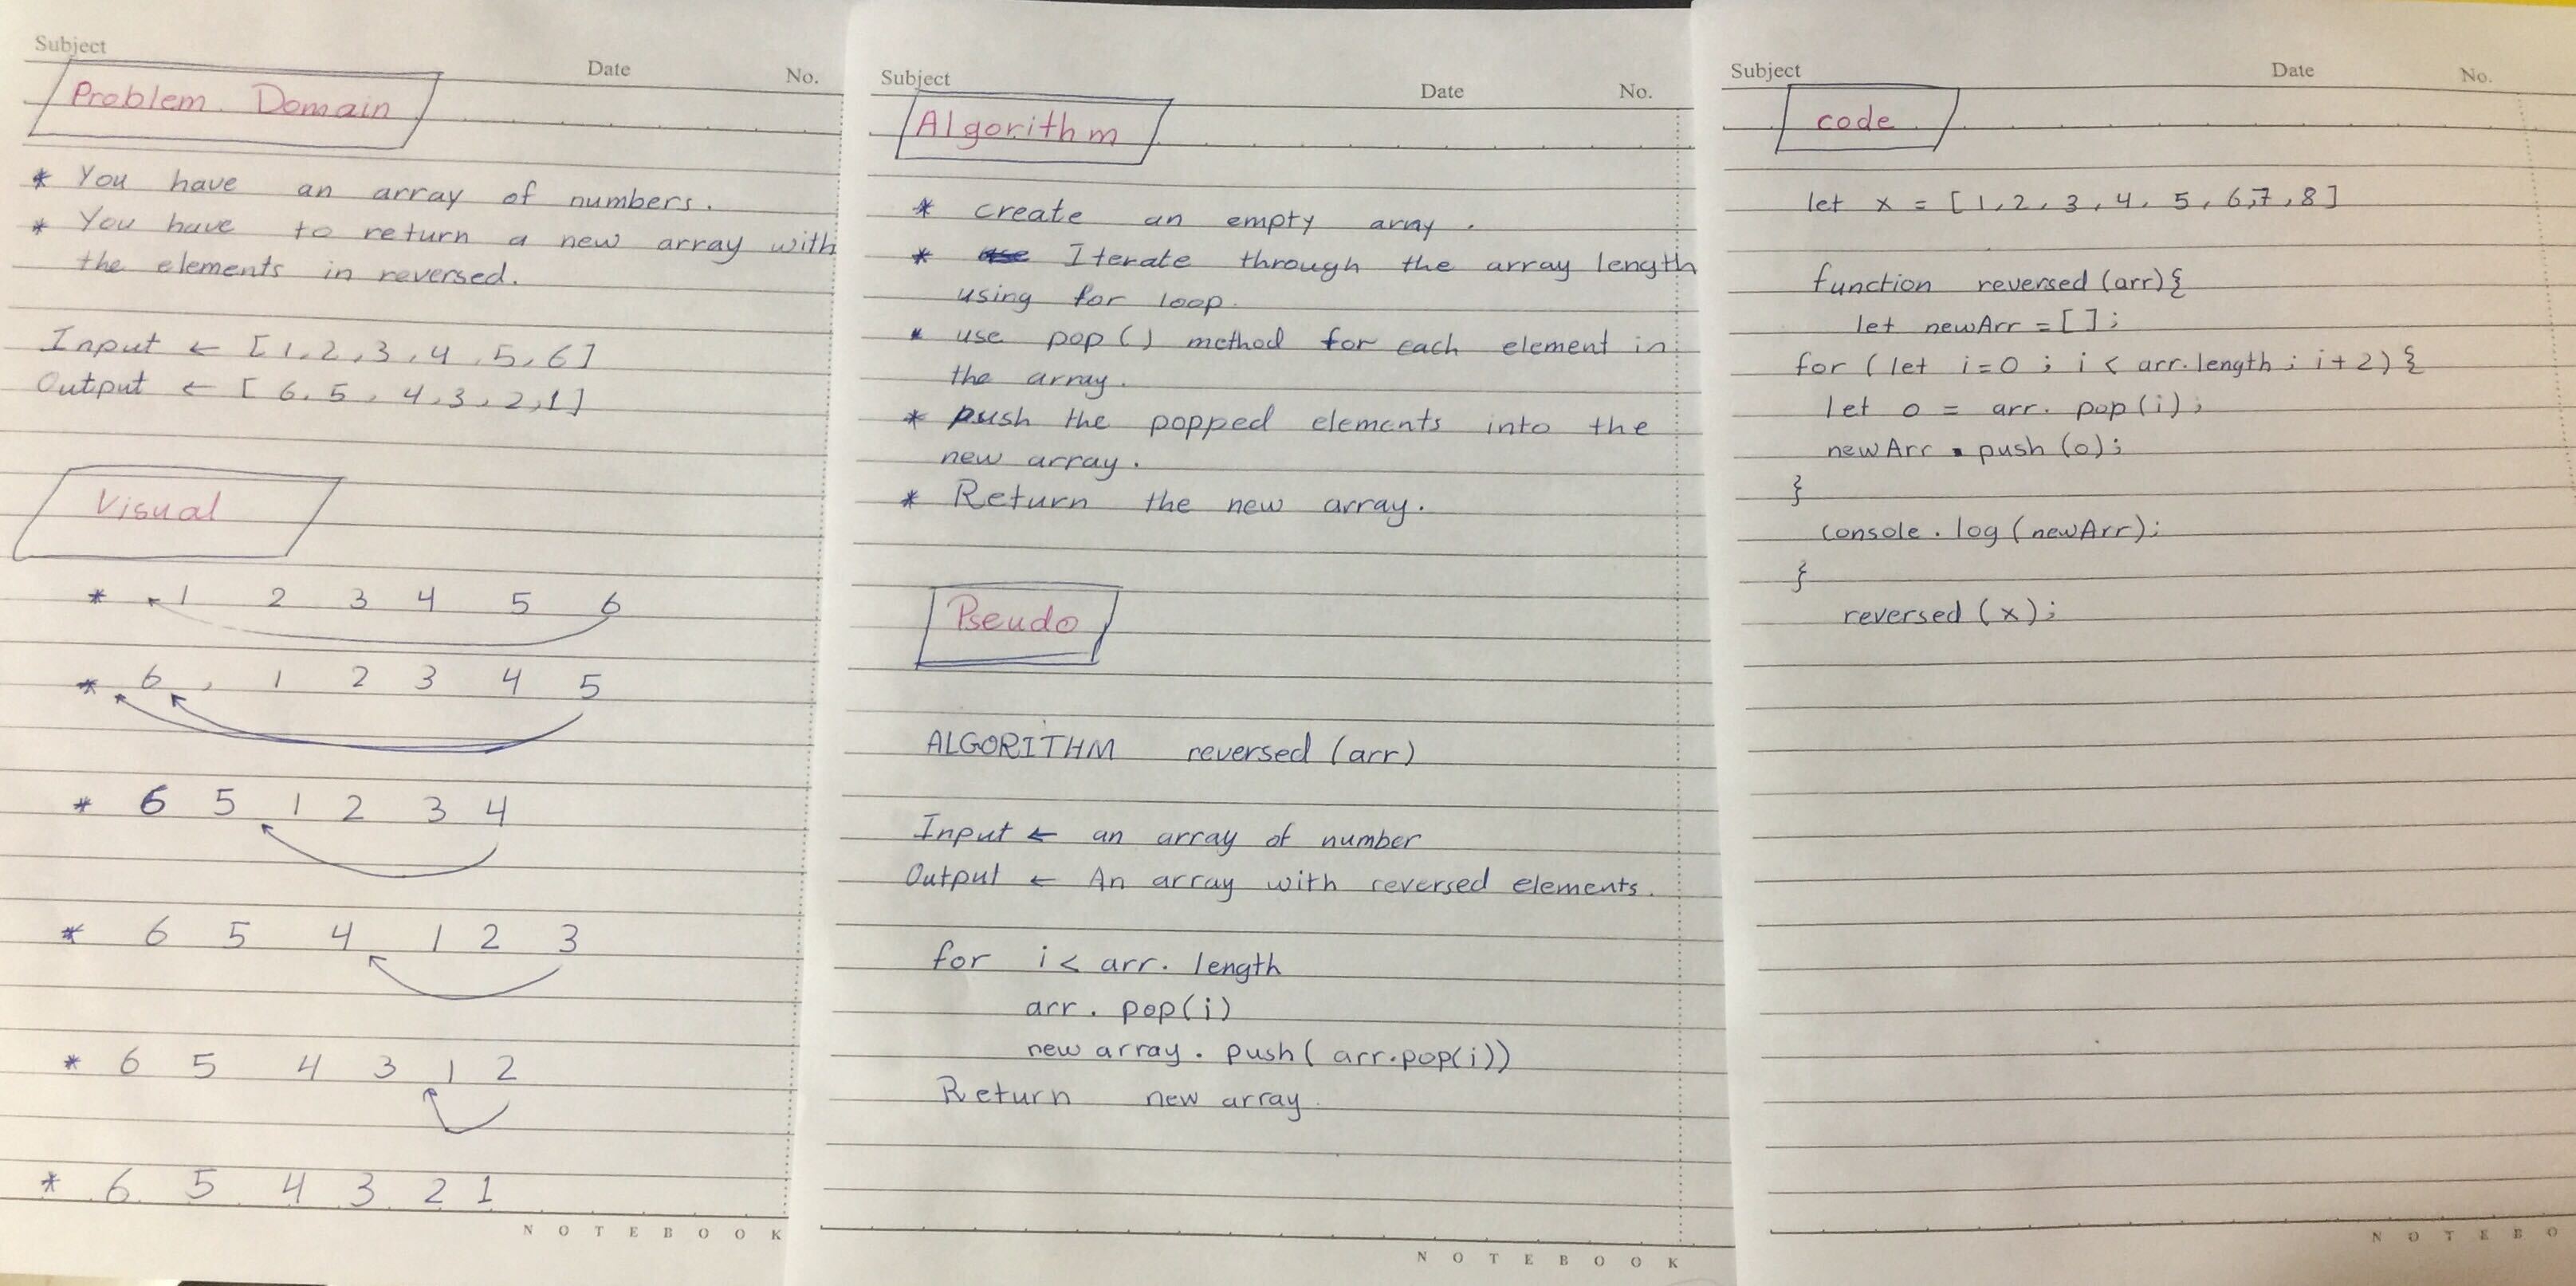 Subject
Date
No.
Problem Domain
* You have an array of numbers.
* You have to return a new array with
the elements in reversed.
Input ← [1,2,3,4,5,6]
Output ← [6,5,4,3,2,1]
Visual
* 1 2 3 4 5 6
* 6, 1 2 3 4 5
* 6 5 1 2 3 4
* 6 5 4 1 2 3
* 6 5 4 3 1 2
* 6 5 4 3 2 1
NOTEBOOK
Subject
Date
No.
Algorithm
* create an empty array.
* Iterate through the array length
using for loop.
* use pop() method for each element in
the array.
* push the popped elements into the
new array.
* Return the new array.
Pseudo
ALGORITHM reversed (arr)
Input ← an array of number
Output ← An array with reversed elements.
for i < arr. length
arr. pop(i)
new array. push( arr.pop(i))
Return new array.
NOTEBOOK
Subject
Date
No.
code
let x = [1,2,3,4,5,6,7,8]
function reversed (arr){
let newArr = [];
for (let i=0; i < arr.length; i+2){
let o = arr. pop(i);
newArr. push (o);
}
console. log (newArr);
}
reversed (x);
NOTEBO